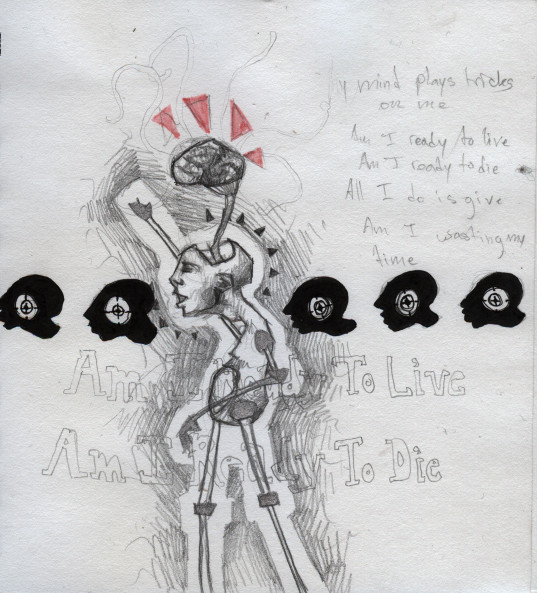 y mind plays tricks
on me
Am I ready to live
Am I ready to die
All I do is give
Am I wasting my
time
Am I Ready To Live
Am I Ready To Die